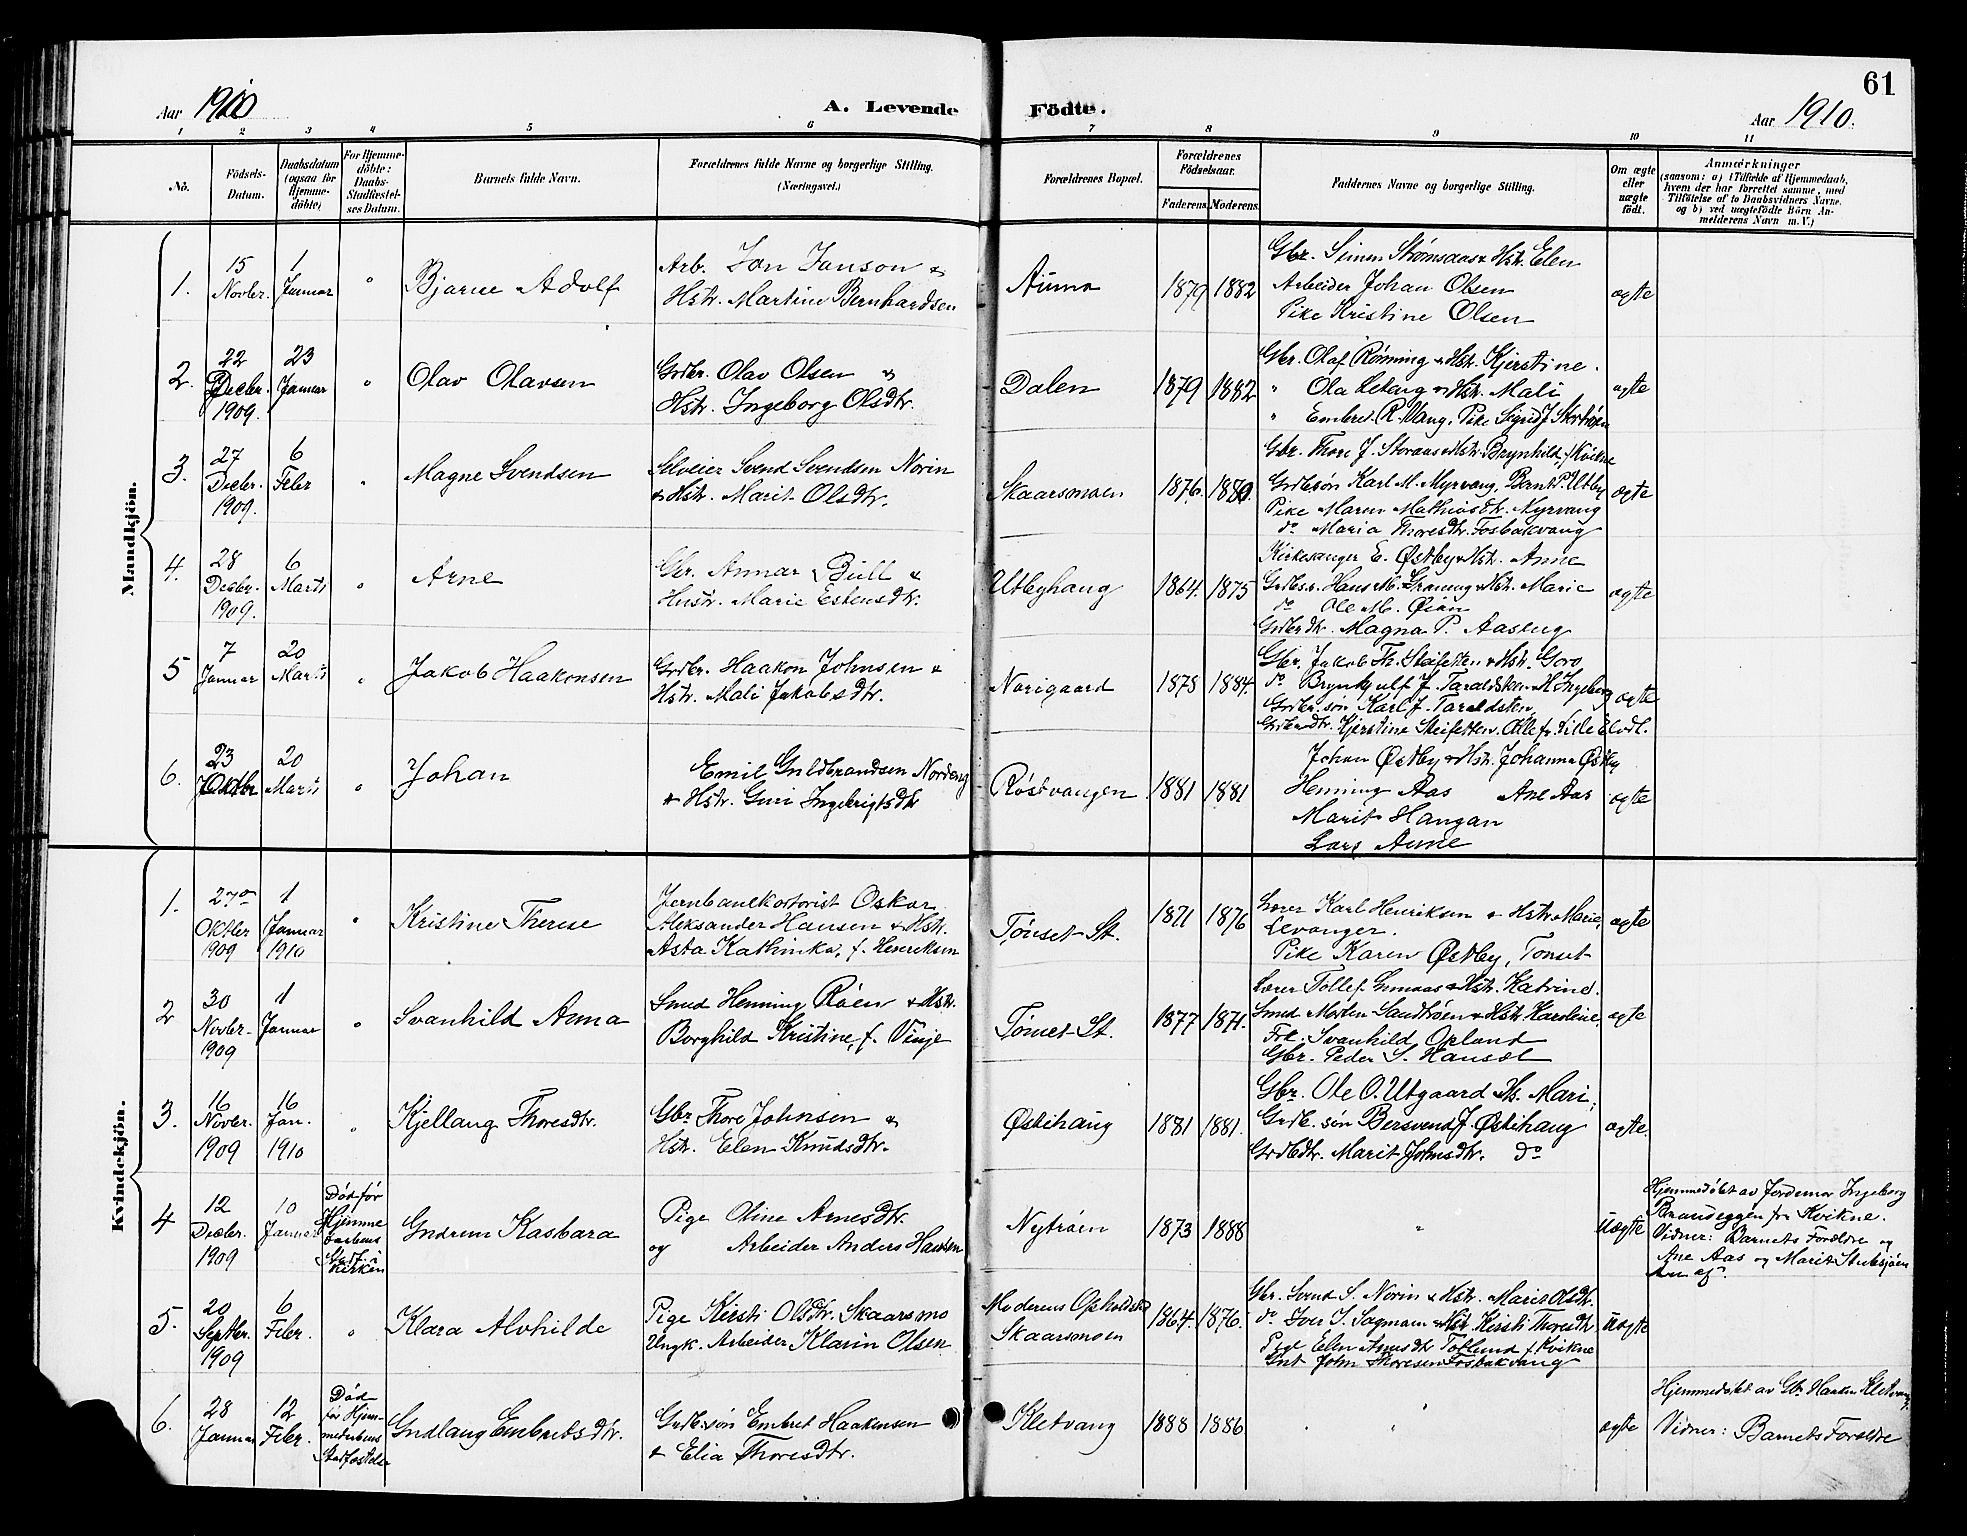 61
Aar 1910
A. Levende
Födte.
Aar 1910.
1 2 3 4 5 6 7 8 9 10 11
No.
Födsels-
Datum.
Daabsdatum
(ogsaa for
Hjemme-
döbte)
For Hjemme-
döbte:
Daabs-
Stadfæstel-
ses Datum.
Barnets fulde Navn.
Forældrenes fulde Navne og borgerlige Stilling.
(Næringsvei.)
Forældrenes Bopæl.
Forældrenes
Födselsaar.
Faderens.
Moderens.
Faddernes Navne og borgerlige Stilling.
Om ægte
eller
uægte
födt.
Anmærkninger
(saasom: a) i Tilfælde af Hjemmedaab,
hvem der har forrettet samme, med
Tilföielse af to Daabsvidners Navne,
og b) ved uægtefödte Börn An-
melderens Navn m. V.)
Mandkjön.
1.
15
Novbr.
1
Januar
"
Bjarne Adolf
Arb. Jon Janson &
Hstr. Martine Bernhardsen
Auma
1879 1882
Gbr. Simen Strømsaas & Hstr. Elen
Arbeider Johan Olsen
Pike Kristine Olsen
ægte
2.
22
Decbr.
1909.
23
Januar
"
Olav Olavsen
Grdbr. Olav Olsen &
Hstr. Ingeborg Olsdtr.
Dalen
1879 1882
Gbr. Olaf Rønning & Hstr. Kjerstine.
" Ola Eteng & Hstr. Mali
" Embret R. Vang, Pike Sigrid J. Stortrøen
ægte
3.
27
Decbr.
1909.
6
Febr
"
Magne Svendsen
Selveier Svend Svendsen Norin
& Hstr. Marit Olsdtr.
Skaarsmoen
1876. 1880.
Gbr. Thore J. Storaas & Hstr. Brynhild, f Kvikne
Grdbrsøn Karl M. Myrvang, Bernt P. Utby
Pike Maren Mathiasdtr. Myrvang
do Maria Thoresdtr. Fosbakvang
ægte
4.
28
Decbr.
1909.
6
Marts
"
Arne
Gbr. Annar Bull &
Hustr. Marie Estensdtr.
Utbyhaug
1864. 1875
Kirkesanger E. Østby & Hstr. Anne
Grdbr. Hans M. Grøning & Hstr. Marie
do Ole M. Øian
Grdbrdtr. Magna P. Aaseng
ægte
5
7
Januar
20
Marts
"
Jakob Haakonsen
Grdbr. Haakon Johnsen &
Hstr. Mali Jakobsdtr.
Norigaard
1878 1884.
Gbr. Jakob Th. Steifetten & Hstr. Goro
do Brynhjulf J. Taraldsten & H Ingeborg
Grdbr.søn Karl J. Taraldsten,
Grdbrdtr. Kjerstine Steifetten. Alle fr. Lille Elvdl.
ægte
6.
23
Oktbr
20
Marts
"
Johan
Emil Guldbrandsen Nordeng
& Hstr. Guri Ingebrigtsdtr
Røstvangen
1881 1881
Johan Østby & Hstr. Johanna Østby
Henning Aas Ane Aas
Marit Haugan
Lars Aune
ægte
Kvindekjön.
1.
27
Oktbr
1909
1
Januar
1910
"
Kristine Therese
Jernbanekontorist Oskar
Aleksander Hansen & Hstr.
Asta Kathinka, f. Henriksen
Tønset St.
1871 1876
Lærer Karl Henriksen & Hstr. Marie,
Levanger.
Pike Karen Østby, Tønset
ægte
2
30
Novbr.
1909
1
Januar
"
Svanhild Anna
Smed Henning Røen & Hstr.
Borghild Kristine, f. Vinje
Tønset St.
1877 1871.
Lærer Tollef Grindaas & Hstr. Katrine.
Smed Morten Sandtrøen & Hstr. Karoline.
Frk. Svanhild Opland
Gbr. Peder S. Hansæl
ægte
3.
16
Novbr.
1909
16
Jan.
1910
"
Kjellaug Thoresdtr.
Gbr Thore Johnsen &
Hstr. Elen Knudsdtr.
Østihaug
1881 1881.
Gbr. Ole O. Utgaard & H. Mari;
Grdb.søn Bersvend J. Østihaug
Grdbdtr. Marit Johnsdtr. do
ægte.
4
12
Decbr.
1909
10
Januar
Død før
Hjemme
daabens
stadf. i
kirken
Gudrun Kasbara
Pige Oline Arnesdtr.
og Arbeider Anders Hansen
Nytrøen
1873 1888
"
uægte
Hjemmedøbt av Jordemor Ingeborg
Brandeggen fr Kvikne.
Vidner: Barnets Forældre og
Ane Aas og Marit Stubsjøen
5.
20
Septbr.
1909
6
Febr.
"
Klara Alvhilde
Pige Kirsti Olsdtr. Skaarsmo
Ungk. Arbeider Klarin Olsen
Moderens Opholdsted
Skaarsmoen
1864. 1876.
Gbr. Svend S. Norin & Hstr. Marit Olsdtr.
do Iver I. Sagmoen & Hstr Kirsti Thoresdtr
Pige Elen Arnesdtr Toslund f. Kvikne
Gut John Thoresen Fosbakvang
uægte
6.
28
Januar
12
Febr.
Død
før Hjem-
medaabens
Stadfæstelse
Gudlaug Embretsdtr.
Grdb.søn Embret Haakensen
& Elia Thoresdtr.
Kletvang
1888 1886
"
ægte
Hjemmedøbt av Gbr Haaken Kletvang
Vidner: Barnets Forældre